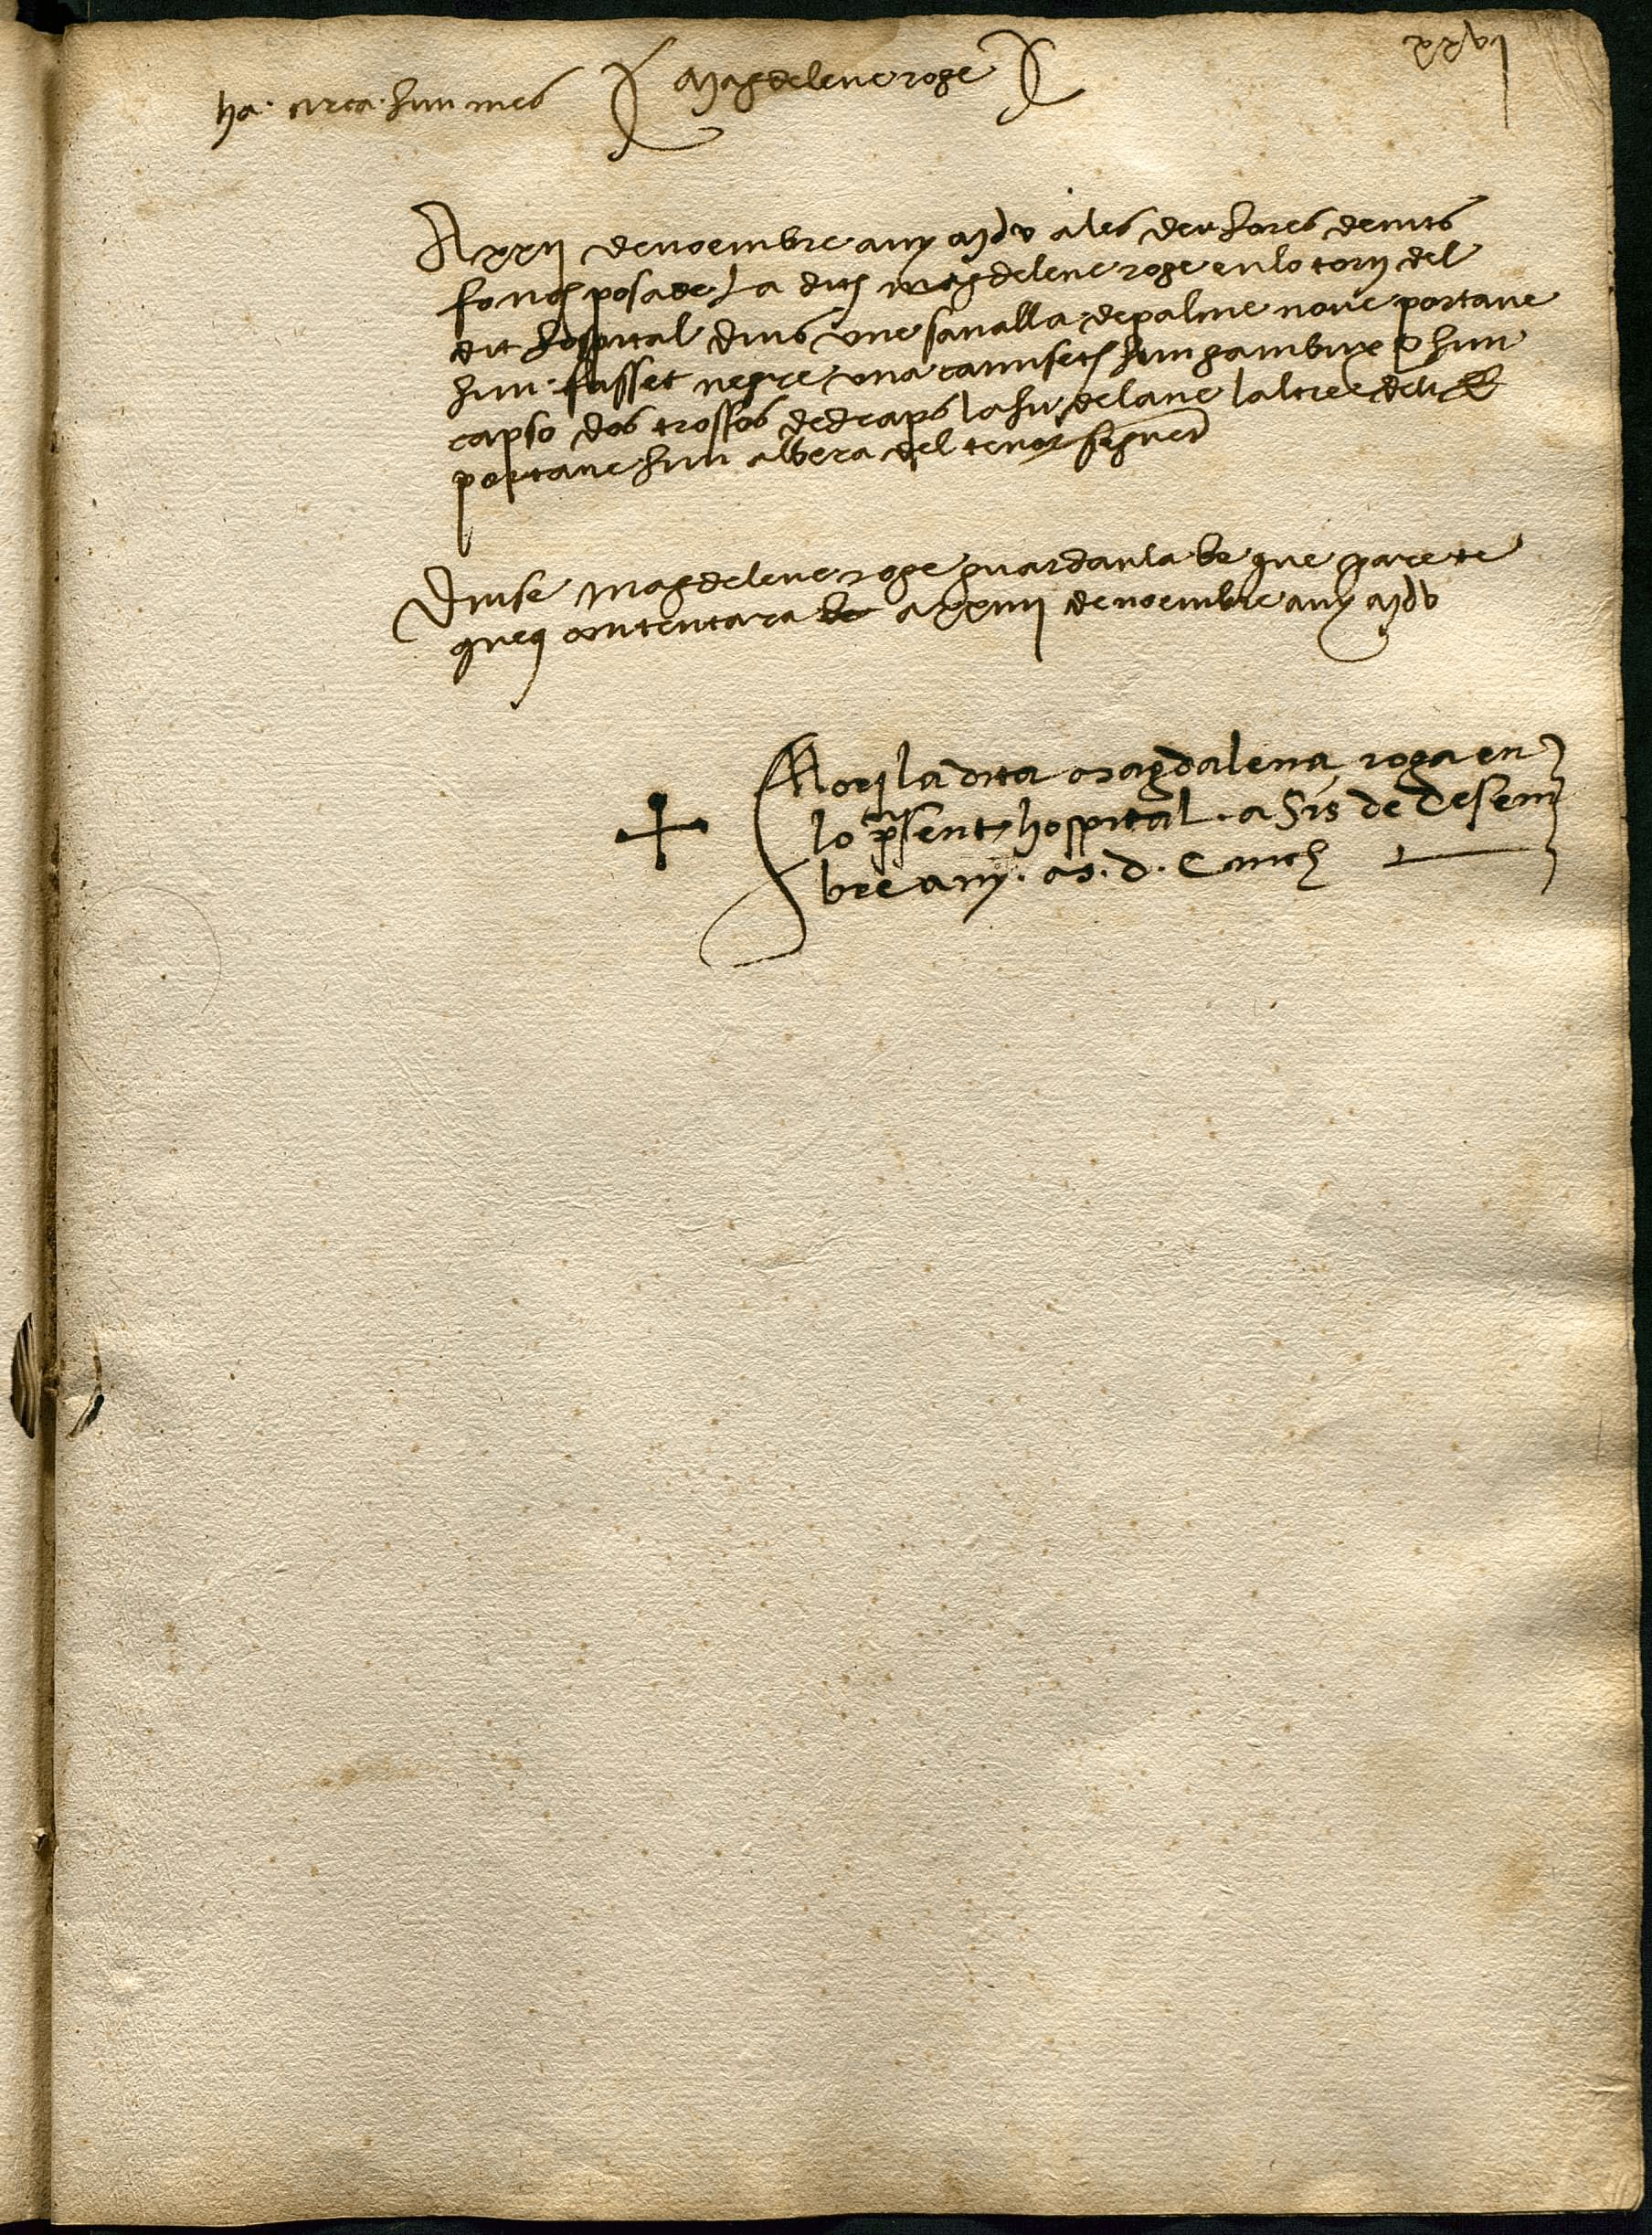 xxvj
ha circa hun mes Magdelene roge
A xxij de noembre any mdv a les deu hores de nits
fonch posade la dita magdelene roge en lo torn del
dit hospital dins une sanalla de palme nove portave
hun fasset negre una camiseta hun gambux hun
capso dos trossos de draps la hu de lane laltre de li
portave hun albera del tenor seguent
Diuse magdelene roge guardaula be que pare te
queus contentara be a xxiiij de noembre any mdv
Mori la dita magdalena roga en
lo present hospital. a Sis de desem
bre any. m. d. Cinch